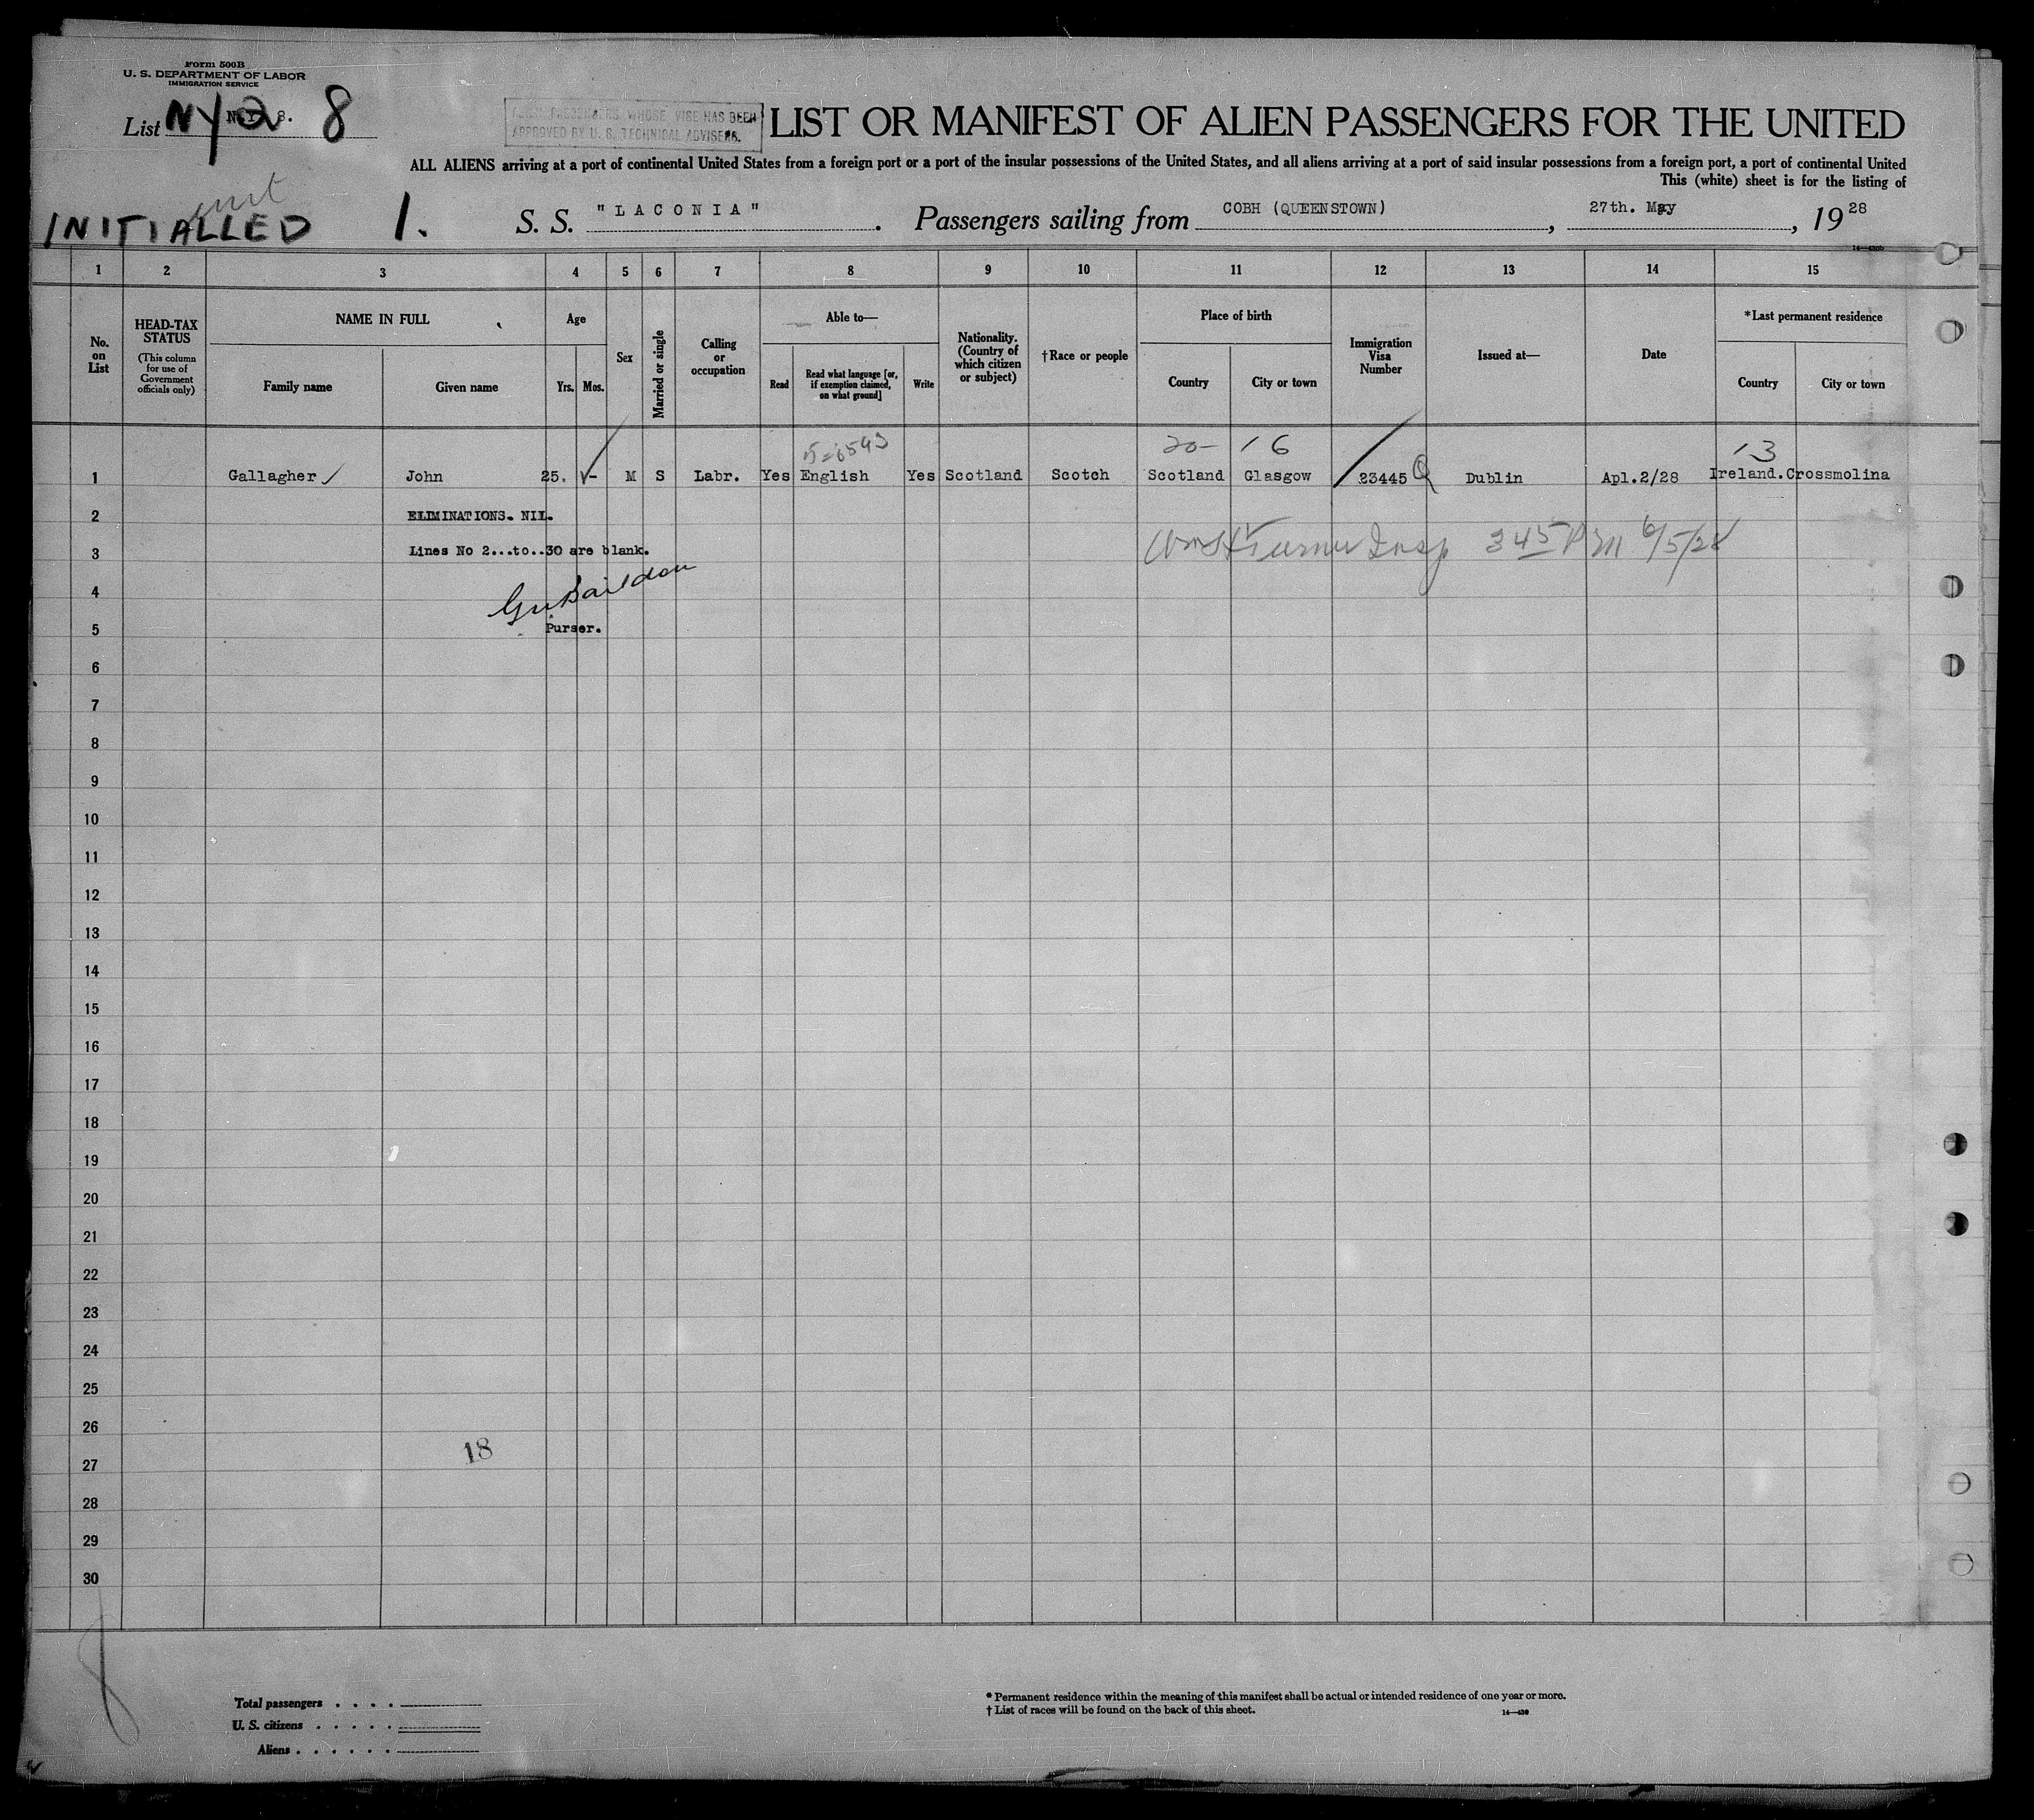 Form 500B
U. S. DEPARTMENT OF LABOR
IMMIGRATION SERVICE
List NY 8
WHOSE VISE HAS BEEN
APPROVED BY U. S. TECHNICAL ADVISERS.
LIST OR MANIFEST OF ALIEN PASSENGERS FOR THE UNITED
ALL ALIENS arriving at a port of continental United States from a foreign port or a port of the insular possessions of the United States, and all aliens arriving at a port of said insular possessions from a foreign port, a port of continental United
This (white) sheet is for the listing of
INITIALLED 1. S. S. "LACONIA". Passengers sailing from COBH (QUEENSTOWN), 27th. May, 1928
14—430b
1 2 3 4 5 6 7 8 9 10 11 12 13 14 15
No. on List
HEAD-TAX STATUS (This column for use of Government officials only)
NAME IN FULL
Family name
Given name
Age
Yrs. Mos.
Sex
Married or single
Calling or occupation
Able to—
Read
Read what language [or, if exemption claimed, on what ground]
Write
Nationality. (Country of which citizen or subject)
†Race or people
Place of birth
Country
City or town
Immigration Visa Number
Issued at—
Date
*Last permanent residence
Country
City or town
20- 16 13
1 Gallagher John 25. - M S Labr. Yes English Yes Scotland Scotch Scotland Glasgow 23445 Dublin Apl.2/28 Ireland. Crossmolina
2 ELIMINATIONS. NIL.
3 Lines No 2...to..30 are blank.
Insp 345 PM 6/5/28
4
5 Purser.
6
7
8
9
10
11
12
13
14
15
16
17
18
19
20
21
22
23
24
25
26
18
27
28
29
30
8
Total passengers . . . .
U. S. citizens . . . . .
Aliens . . . . . .
* Permanent residence within the meaning of this manifest shall be actual or intended residence of one year or more.
† List of races will be found on the back of this sheet.
14—430